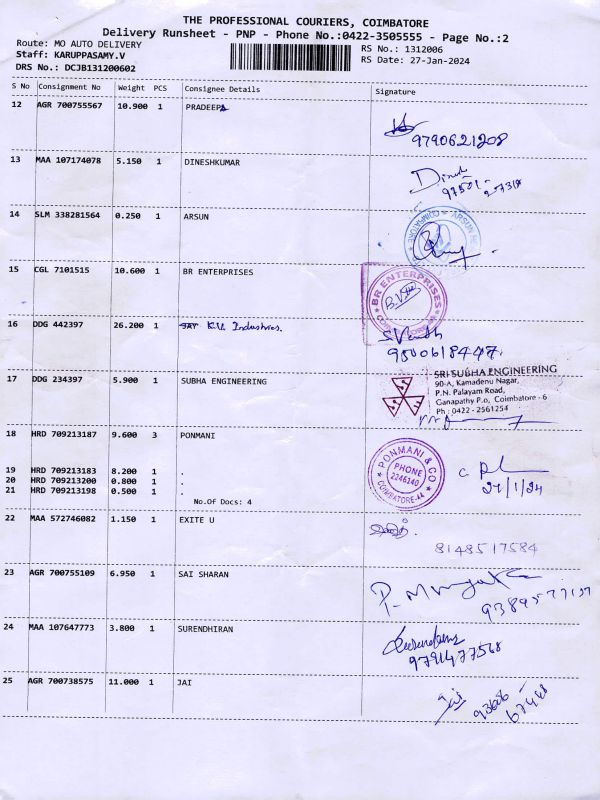 THE PROFESSIONAL COURIERS, COIMBATORE
Delivery Runsheet - PNP - Phone No.:0422-3505555 - Page No.:2
Route: MO AUTO DELIVERY
Staff: KARUPPASAMY.V
DRS No.: DCJB131200602
RS No.: 1312006
RS Date: 27-Jan-2024
S No Consignment No Weight PCS Consignee Details Signature
12 AGR 700755567 10.900 1 PRADEEPA
9790621208
13 MAA 107174078 5.150 1 DINESHKUMAR
14 SLM 338281564 0.250 1 ARSUN
15 CGL 7101515 10.600 1 BR ENTERPRISES
BR ENTERPRISES
16 DDG 442397 26.200 1 K.V. Industries.
9500618447.
17 DDG 234397 5.900 1 SUBHA ENGINEERING
SRI SUBHA ENGINEERING
90-A, Kamadenu Nagar,
P.N. Palayam Road,
Ganapathy P.o, Coimbatore - 6
Ph : 0422 - 2561254
18 HRD 709213187 9.600 3 PONMANI
PONMANI & CO
PHONE
2246140
COIMBATORE-44
27/1/24
19 HRD 709213183 8.200 1 .
20 HRD 709213200 0.800 1 .
21 HRD 709213198 0.500 1 .
No.Of Docs: 4
22 MAA 572746082 1.150 1 EXITE U
8148517584
23 AGR 700755109 6.950 1 SAI SHARAN
24 MAA 107647773 3.800 1 SURENDHIRAN
9791477568
25 AGR 700738575 11.000 1 JAI